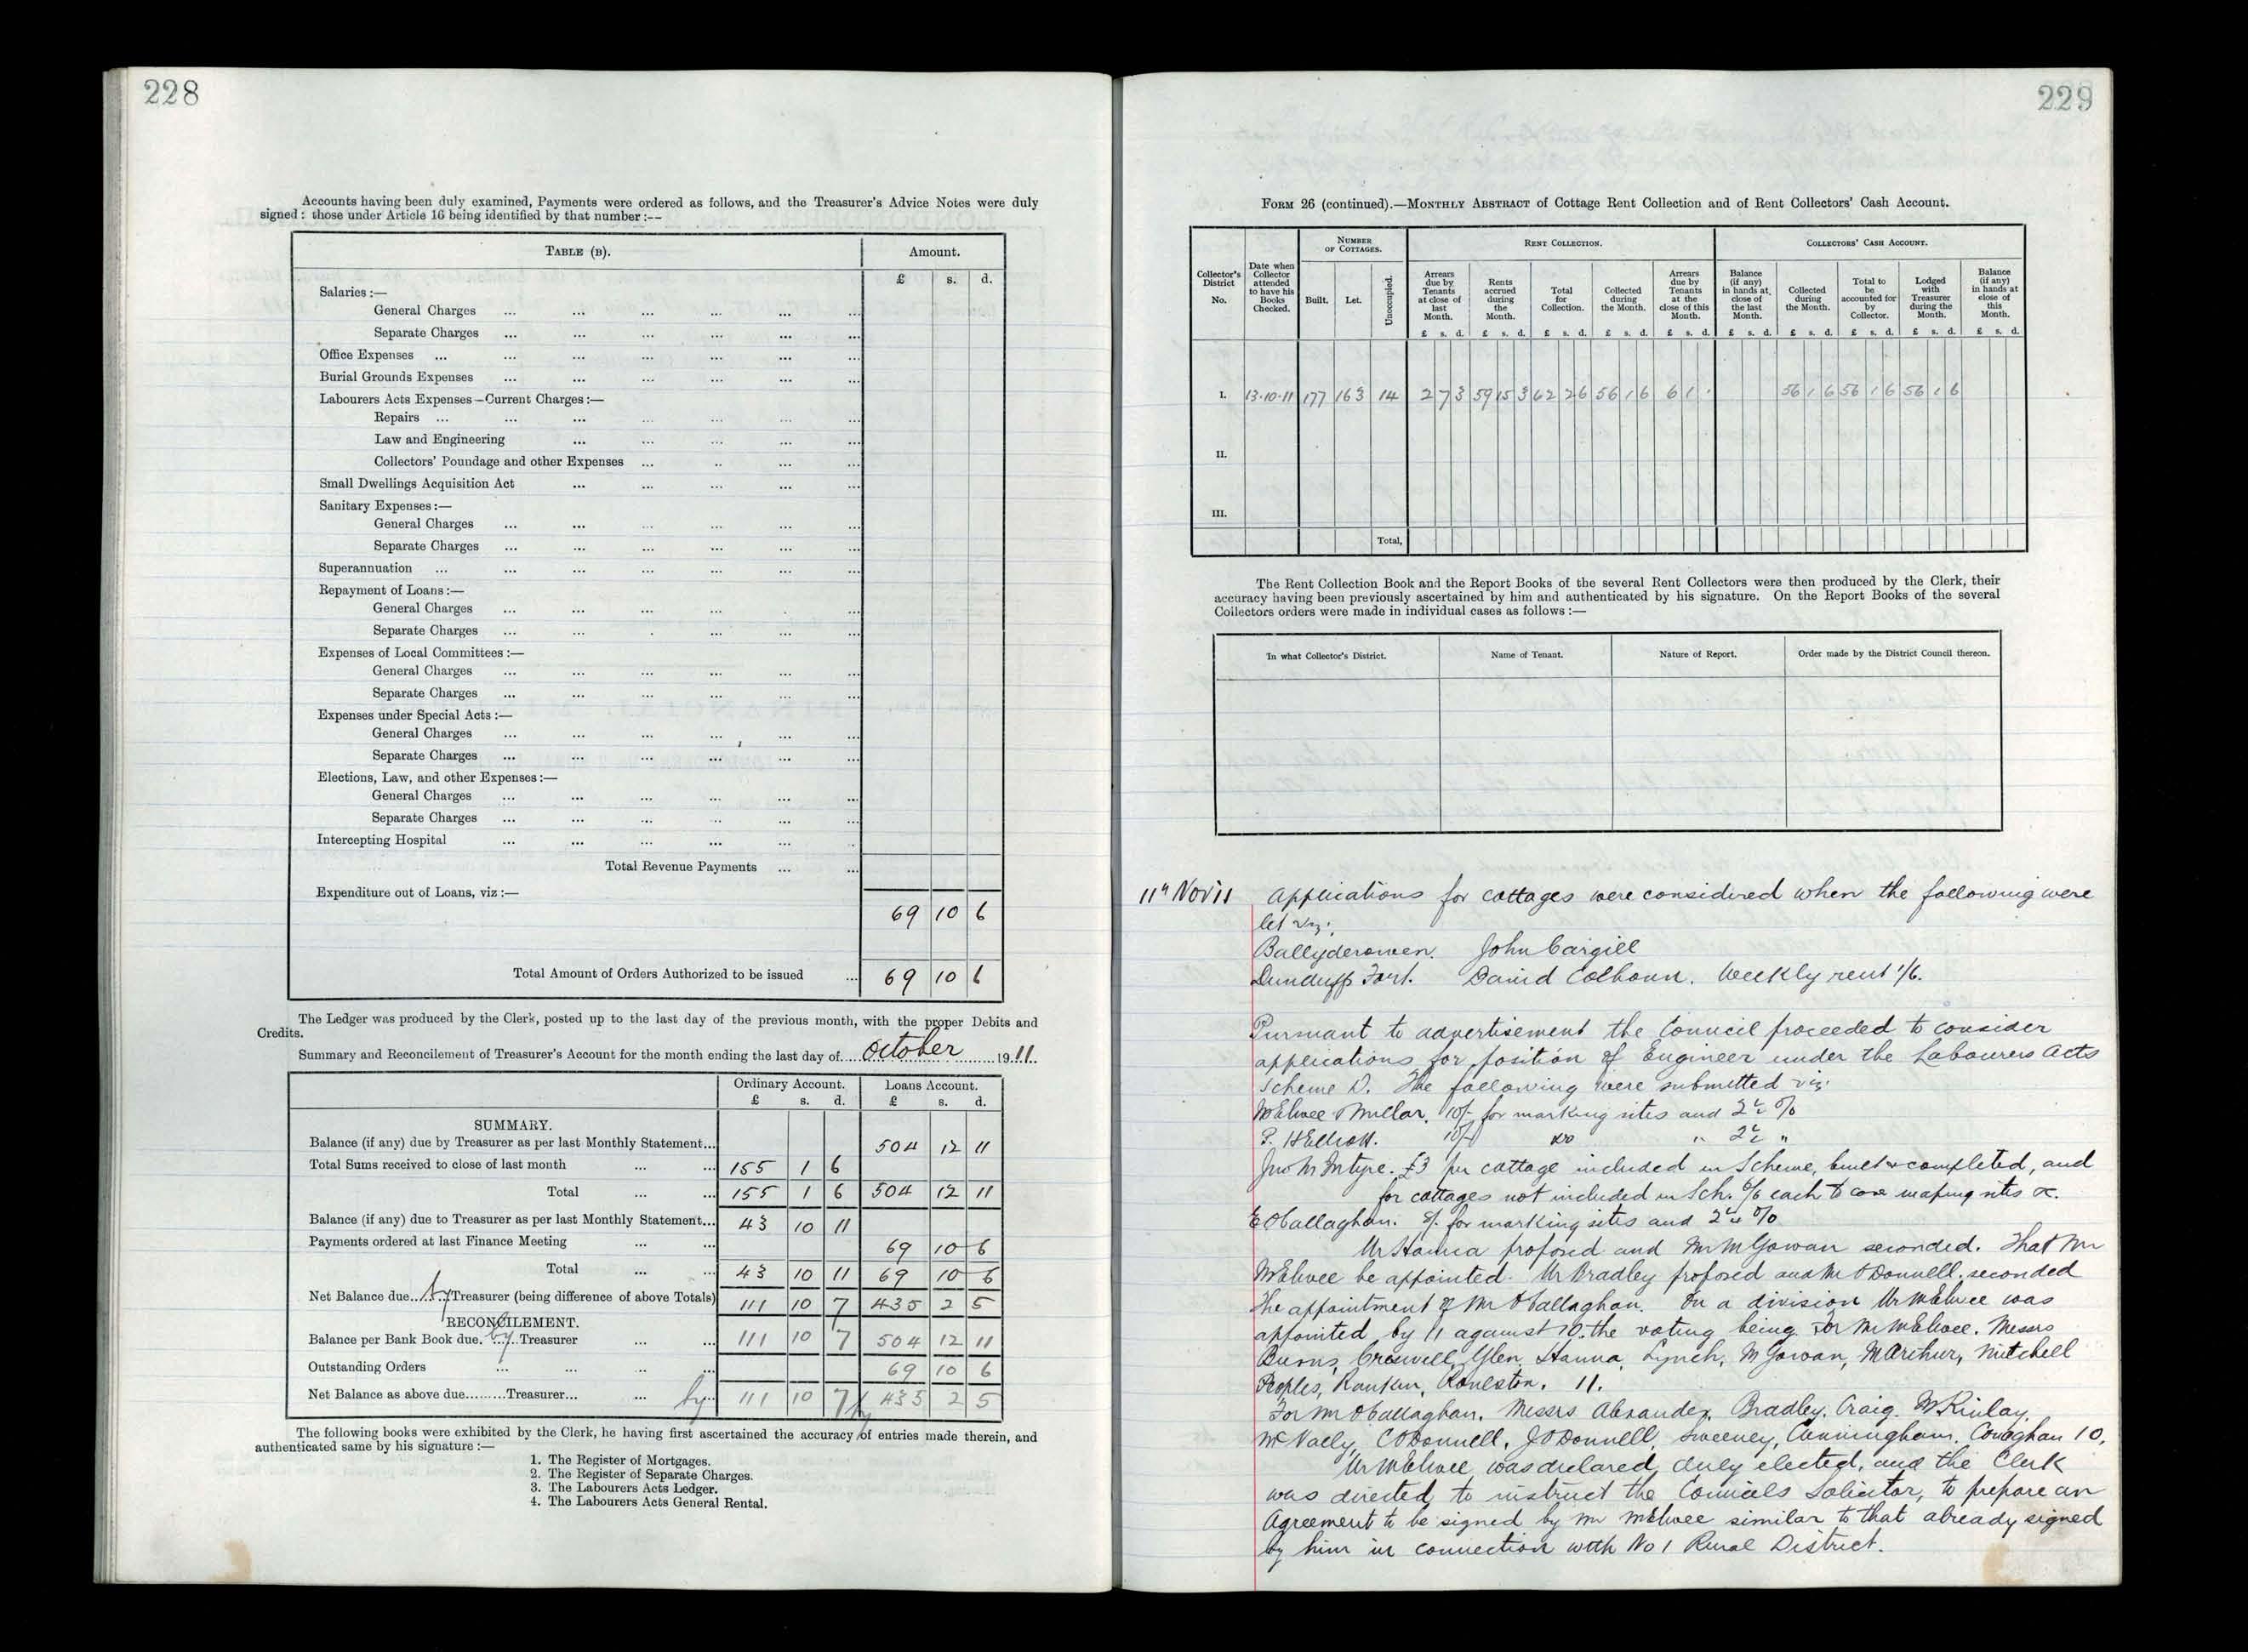 228
Accounts having been duly examined, Payments were ordered as follows, and the Treasurer's Advice Notes were duly
signed: those under Article 16 being identified by that number:—
TABLE (B). Amount.
£ s. d.
Salaries:—
General Charges
Separate Charges
Office Expenses
Burial Grounds Expenses
Labourers Acts Expenses—Current Charges:—
Repairs
Law and Engineering
Collectors' Poundage and other Expenses
Small Dwellings Acquisition Act
Sanitary Expenses:—
General Charges
Separate Charges
Superannuation
Repayment of Loans:—
General Charges
Separate Charges
Expenses of Local Committees:—
General Charges
Separate Charges
Expenses under Special Acts:—
General Charges
Separate Charges
Elections, Law, and other Expenses:—
General Charges
Separate Charges
Intercepting Hospital
Total Revenue Payments
Expenditure out of Loans, viz:—
69 10 6
Total Amount of Orders Authorized to be issued ... 69 10 6
The Ledger was produced by the Clerk, posted up to the last day of the previous month, with the proper Debits and
Credits.
Summary and Reconcilement of Treasurer's Account for the month ending the last day of October 1911.
Ordinary Account. Loans Account.
£ s. d. £ s. d.
SUMMARY.
Balance (if any) due by Treasurer as per last Monthly Statement... 504 12 11
Total Sums received to close of last month ... ... 155 1 6
Total ... ... 155 1 6 504 12 11
Balance (if any) due to Treasurer as per last Monthly Statement... 43 10 11
Payments ordered at last Finance Meeting ... ... 69 10 6
Total ... ... 43 10 11 69 10 6
Net Balance due by Treasurer (being difference of above Totals) 111 10 7 435 2 5
RECONCILEMENT.
Balance per Bank Book due by Treasurer ... ... 111 10 7 504 12 11
Outstanding Orders ... ... ... 69 10 6
Net Balance as above due.........Treasurer... ... by 111 10 7 by 435 2 5
The following books were exhibited by the Clerk, he having first ascertained the accuracy of entries made therein, and
authenticated same by his signature:—
1. The Register of Mortgages.
2. The Register of Separate Charges.
3. The Labourers Acts Ledger.
4. The Labourers Acts General Rental.
229
FORM 26 (continued).—MONTHLY ABSTRACT of Cottage Rent Collection and of Rent Collectors' Cash Account.
Collector's District No.
Date when Collector attended to have his Books Checked.
NUMBER OF COTTAGES.
Built. Let. Unoccupied.
RENT COLLECTION.
Arrears due by Tenants at close of last Month. £ s. d.
Rents accrued during the Month. £ s. d.
Total for Collection. £ s. d.
Collected during the Month. £ s. d.
Arrears due by Tenants at the close of this Month. £ s. d.
COLLECTORS' CASH ACCOUNT.
Balance (if any) in hands at close of the last Month. £ s. d.
Collected during the Month. £ s. d.
Total to be accounted for by Collector. £ s. d.
Lodged with Treasurer during the Month. £ s. d.
Balance (if any) in hands at close of this Month. £ s. d.
I. 13.10.11 177 163 14 2 7 3 59 15 3 62 2 6 56 1 6 6 1 . 56 1 6 56 1 6 56 1 6
II.
III.
Total,
The Rent Collection Book and the Report Books of the several Rent Collectors were then produced by the Clerk, their
accuracy having been previously ascertained by him and authenticated by his signature. On the Report Books of the several
Collectors orders were made in individual cases as follows:—
In what Collector's District. Name of Tenant. Nature of Report. Order made by the District Council thereon.
11th Nov 11 Applications for cottages were considered when the following were
let viz:
Ballyderowen. John Cargill
Dunduff's Fort. David Colhoun. Weekly rent 1/6.
Pursuant to advertisement the Council proceeded to consider
applications for position of Engineer under the Labourers Acts
Scheme D. The following were submitted viz:
McElwee & Millar. 10/- for marking sites and 2½ %
P. H Elliott. 10/- do " 2½ "
Jno McIntyre. £3 per cottage included in Scheme, built & completed, and
for cottages not included in Sch. each to making sites &c.
E O'Callaghan. for marking sites and %
Mr Hanna proposed and Mr McGowan seconded. That Mr
McElwee be appointed. Mr Bradley proposed and Mr O'Donnell seconded
the appointment of Mr O'Callaghan. On a division Mr McElwee was
appointed by 11 against 10. the voting being For Mr McElwee. Messrs
Burns, Creswell, Glen, Hanna, Lynch, McGowan, McArthur, Mitchell
Peoples, Rankin, Roulston. 11.
For Mr O'Callaghan. Messrs Alexander, Bradley, Craig, McKinlay,
McNally, C O'Donnell, J O'Donnell, Sweeney, Cunningham, Conaghan 10.
Mr McElwee was declared duly elected, and the Clerk
was directed to instruct the Councils Solicitor, to prepare an
Agreement to be signed by Mr McElwee similar to that already signed
by him in connection with No 1 Rural District.